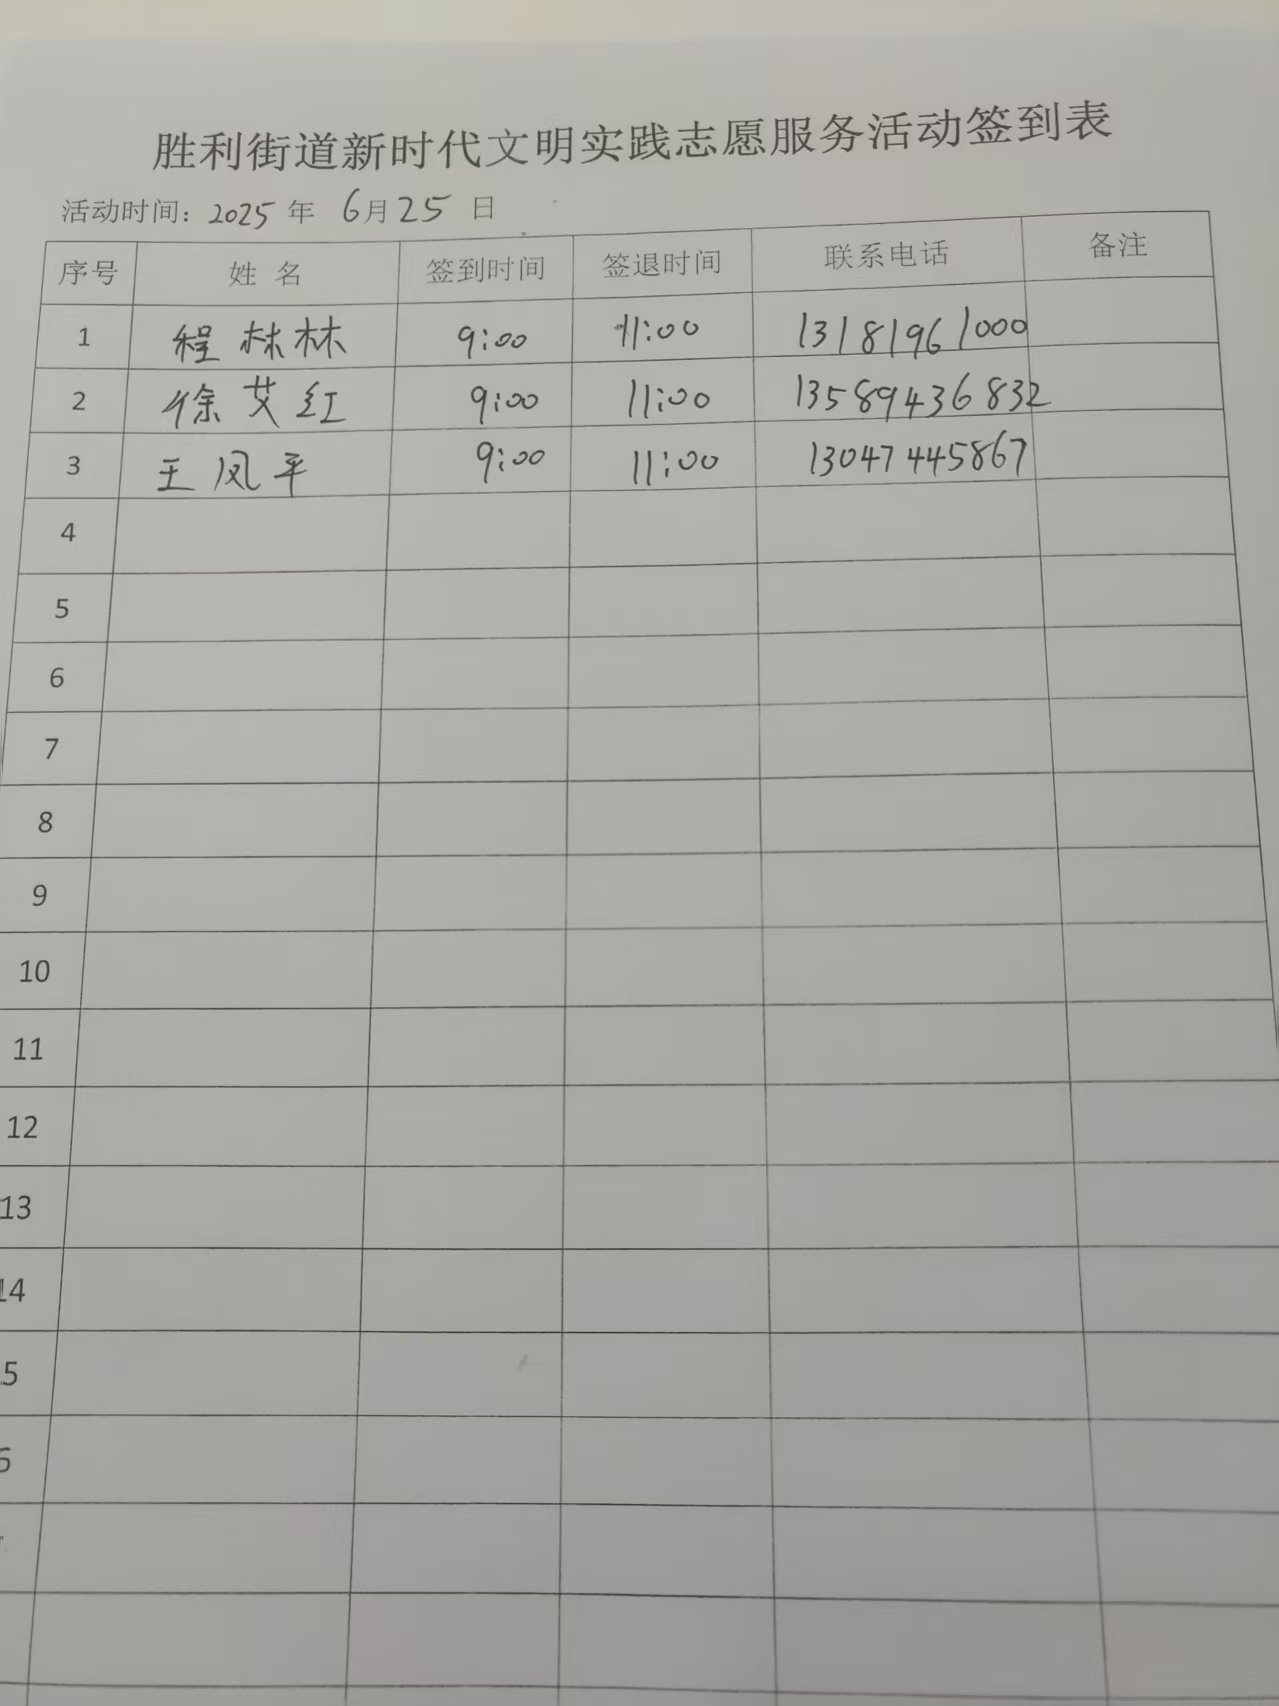 胜利街道新时代文明实践志愿服务活动签到表
活动时间：2025 年 6月25 日
序号 姓 名 签到时间 签退时间 联系电话 备注
1 程林林 9:00 11:00 13181961000
2 徐艾红 9:00 11:00 13589436832
3 王凤平 9:00 11:00 13047445867
4
5
6
7
8
9
10
11
12
13
14
5
6